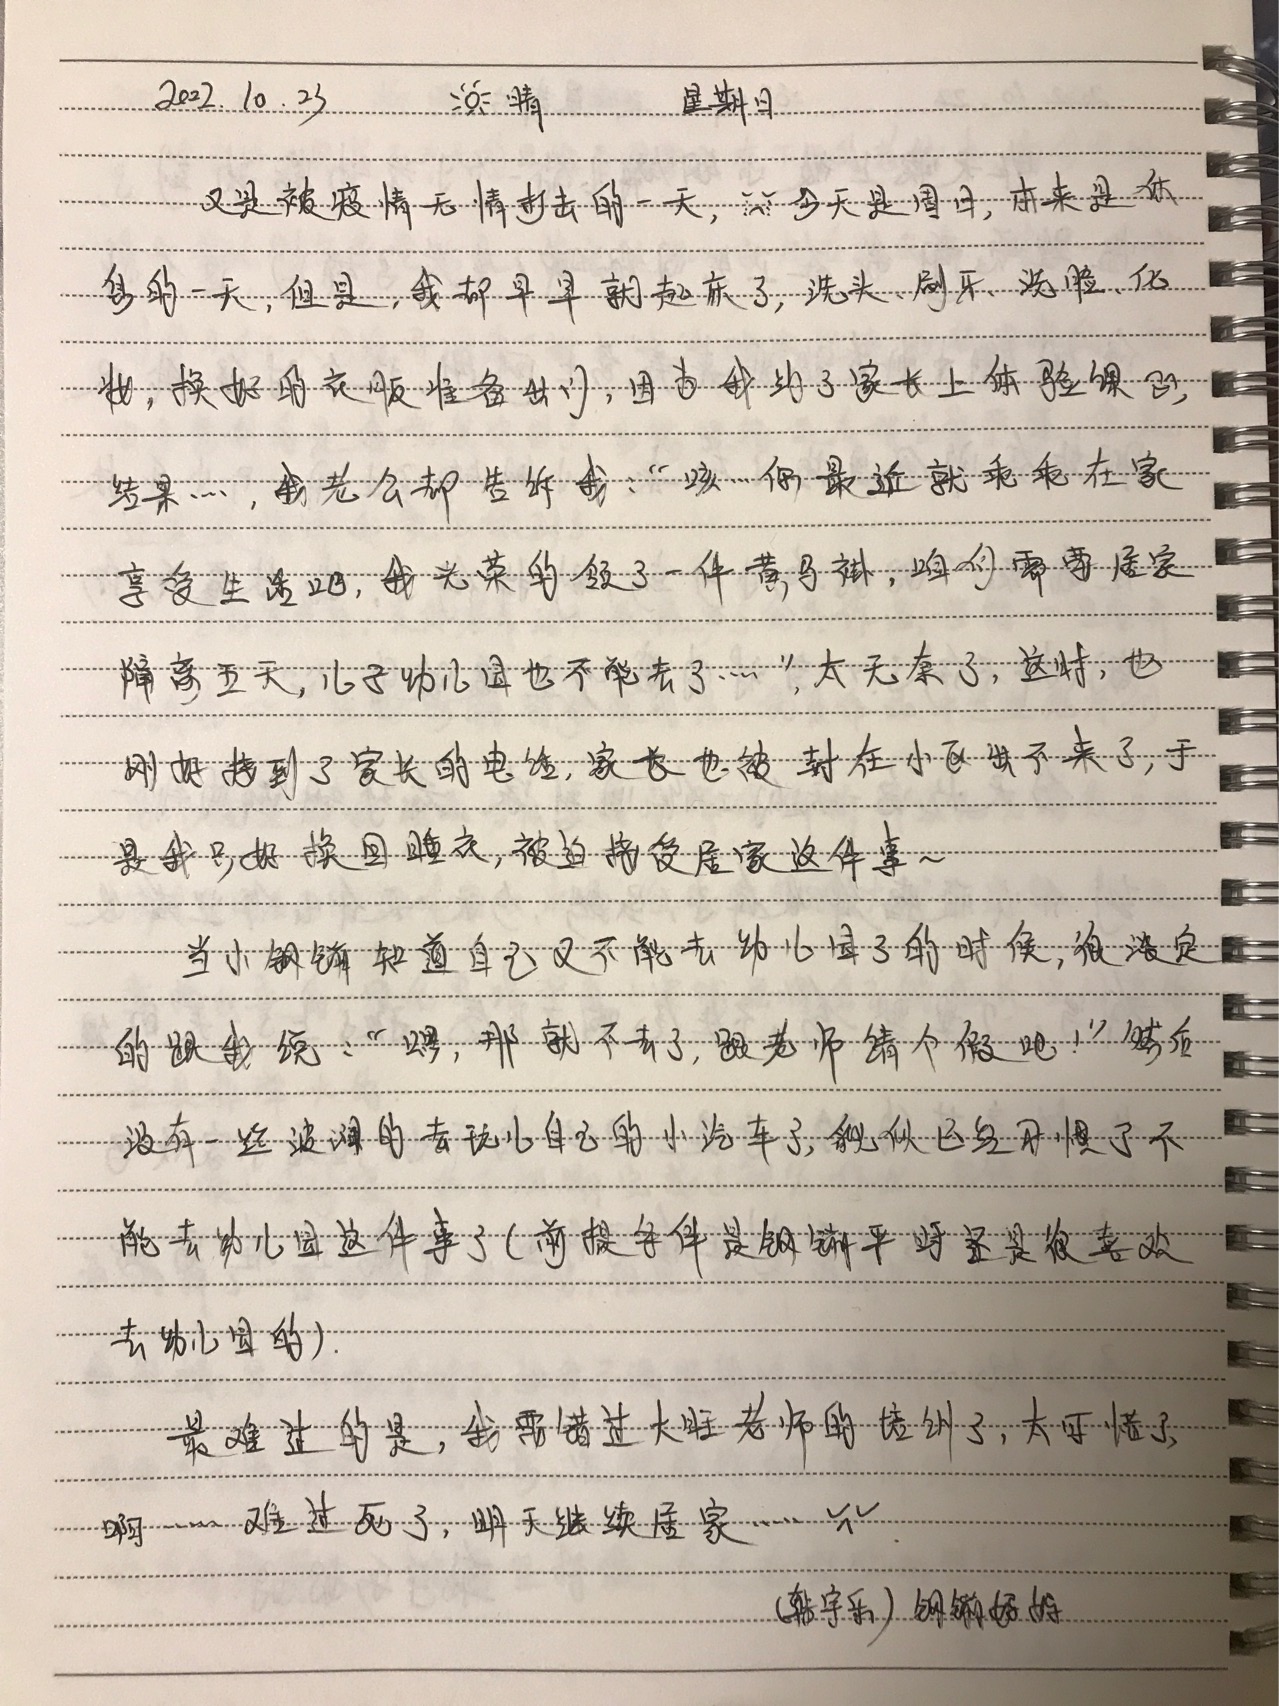 2022.10.23 晴 星期日
又是被疫情无情打击的一天，今天是周日，本来是休
息的一天，但是，我却早早就起床了，洗头、刷牙、洗脸、化
妆，换好的衣服准备出门，因为我约了家长上体验课，
结果……，我老公却告诉我：“咳…你最近就乖乖在家
享受生活吧，我光荣的领了一件黄马褂，咱们需要居家
隔离五天，儿子幼儿园也不能去了……”，太无奈了，这时，也
刚好接到了家长的电话，家长也被封在小区出不来了，于
是我只好换回睡衣，被迫接受居家这件事～
当小钢镚知道自己又不能去幼儿园了的时候，很淡定
的跟我说：“嗯，那就不去了，跟老师请个假吧！”然后
没有一丝波澜的去玩儿自己的小汽车了，貌似已经习惯了不
能去幼儿园这件事了（前提条件是钢镚平时还是很喜欢
去幼儿园的）.
最难过的是，我要错过大旺老师的培训了，太可惜了
啊……难过死了，明天继续居家……
（韩宇乐）钢镚妈妈